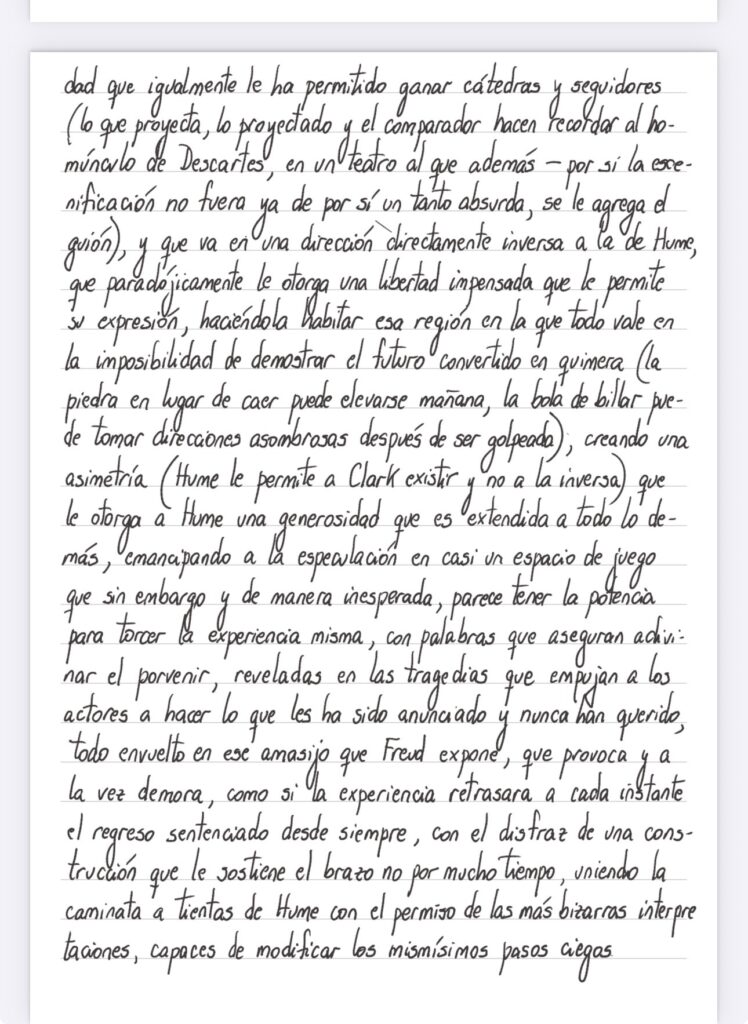 dad que igualmente le ha permitido ganar cátedras y seguidores
(lo que proyecta, lo proyectado y el comparador hacen recordar al ho-
múnculo de Descartes, en un teatro al que además – por si la esce-
nificación no fuera ya de por sí un tanto absurda, se le agrega el
guión), y que va en una dirección directamente inversa a la de Hume,
que paradójicamente le otorga una libertad impensada que le permite
su expresión, haciéndola habitar esa región en la que todo vale en
la imposibilidad de demostrar el futuro convertido en quimera (la
piedra en lugar de caer puede elevarse mañana, la bola de billar pue-
de tomar direcciones asombrosas después de ser golpeada), creando una
asimetría (Hume le permite a Clark existir y no a la inversa) que
le otorga a Hume una generosidad que es extendida a todo lo de-
más, emancipando a la especulación en casi un espacio de juego
que sin embargo y de manera inesperada, parece tener la potencia
para torcer la experiencia misma, con palabras que aseguran adivi-
nar el porvenir, reveladas en las tragedias que empujan a los
actores a hacer lo que les ha sido anunciado y nunca han querido,
todo envuelto en ese amasijo que Freud expone, que provoca y a
la vez demora, como si la experiencia retrasara a cada instante
el regreso sentenciado desde siempre, con el disfraz de una cons-
trucción que le sostiene el brazo no por mucho tiempo, uniendo la
caminata a tientas de Hume con el permiso de las más bizarras interpre
taciones, capaces de modificar los mismísimos pasos ciegos